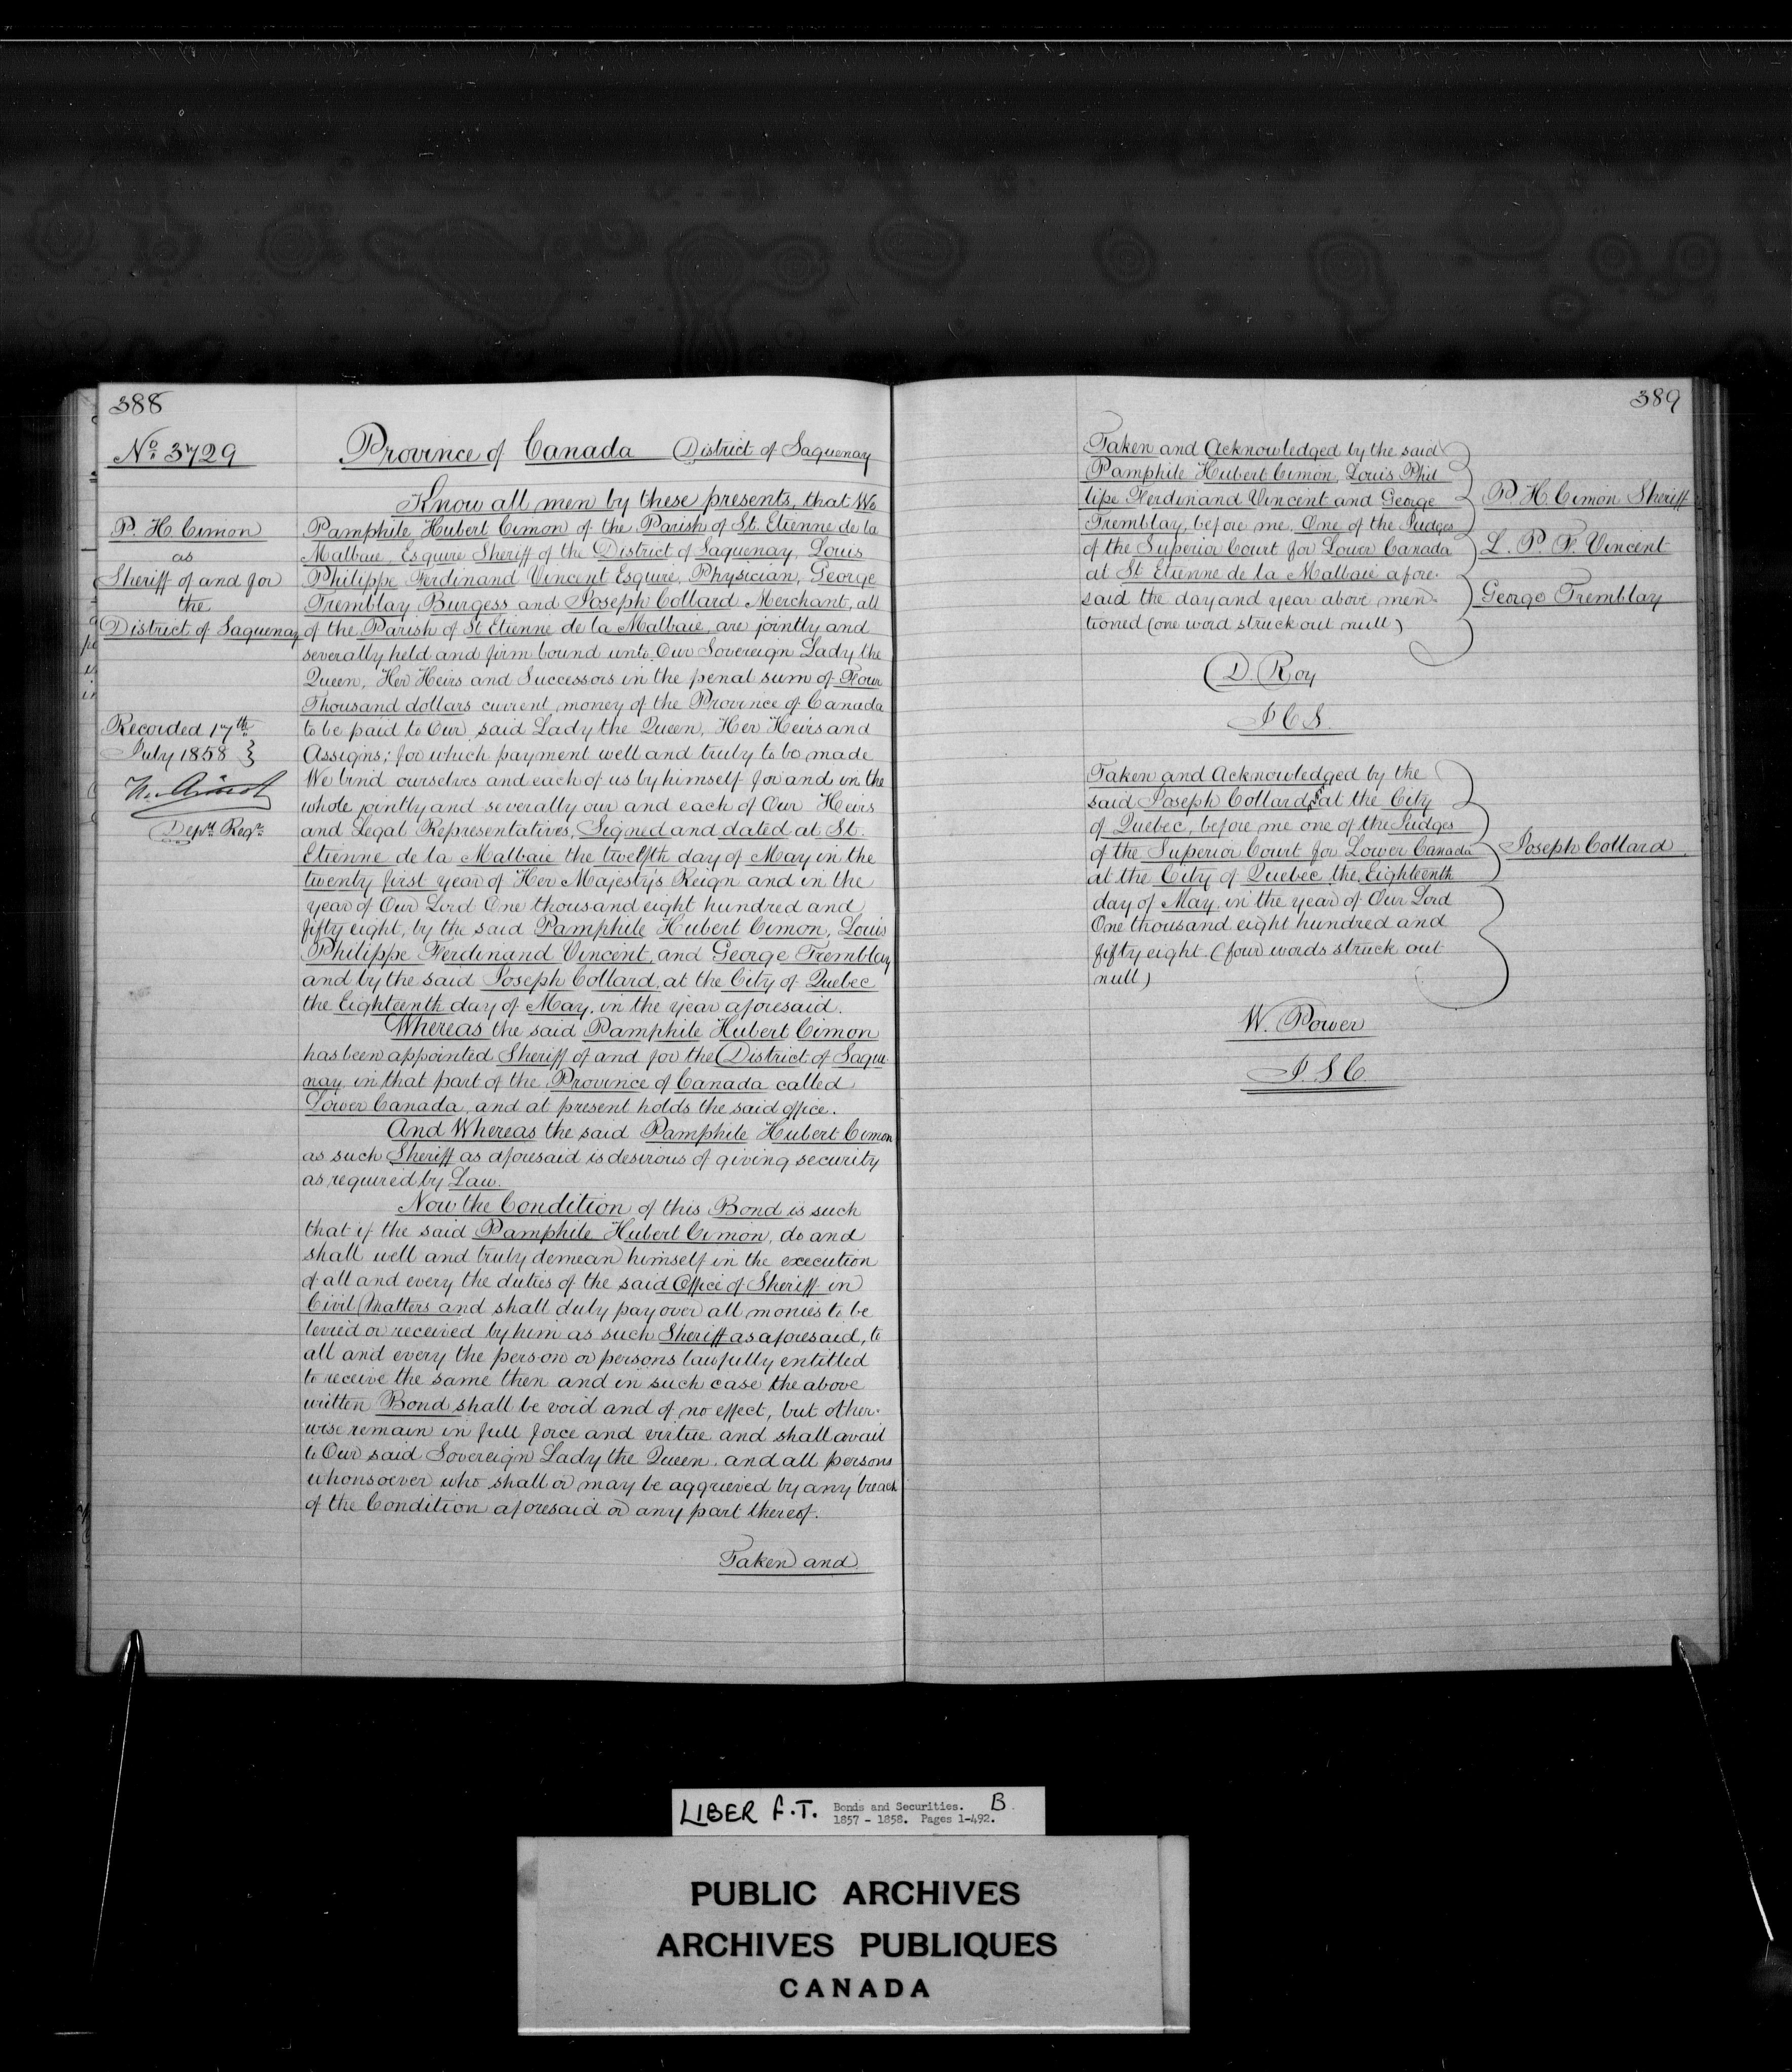 388
No. 3729
P. H. Cimon
as
Sheriff of and for
the
District of Saguenay
Recorded 17th
July 1858
Depy. Regr.
Province of Canada District of Saguenay
Know all men by these presents, that We
Pamphile Hubert Cimon of the Parish of St. Etienne de la
Malbaie, Esquire Sheriff of the District of Saguenay, Louis
Philippe Ferdinand Vincent Esquire, Physician, George
Tremblay Burgess and Joseph Collard Merchant, all
of the Parish of St Etienne de la Malbaie, are jointly and
severally held and firm bound unto Our Sovereign Lady the
Queen, Her Heirs and Successors in the penal sum of Four
Thousand dollars current money of the Province of Canada
to be paid to Our said Lady the Queen, Her Heirs and
Assigns; for which payment well and truly to be made
We bind ourselves and each of us by himself for and in the
whole jointly and severally our and each of Our Heirs
and Legal Representatives, Signed and dated at St.
Etienne de la Malbaie the twelfth day of May in the
twenty first year of Her Majesty's Reign and in the
year of Our Lord One thousand eight hundred and
fifty eight, by the said Pamphile Hubert Cimon, Louis
Philippe Ferdinand Vincent, and George Tremblay
and by the said Joseph Collard, at the City of Quebec
the Eighteenth day of May, in the year aforesaid.
Whereas the said Pamphile Hubert Cimon
has been appointed Sheriff of and for the District of Sague-
nay in that part of the Province of Canada called
Lower Canada, and at present holds the said office.
And Whereas the said Pamphile Hubert Cimon
as such Sheriff as aforesaid is desirous of giving security
as required by Law.
Now the Condition of this Bond is such
that if the said Pamphile Hubert Cimon, do and
shall well and truly demean himself in the execution
of all and every the duties of the said Office of Sheriff in
Civil Matters and shall duly pay over all monies to be
levied or received by him as such Sheriff as aforesaid, to
all and every the person or persons lawfully entitled
to receive the same then and in such case the above
written Bond shall be void and of no effect, but other-
wise remain in full force and virtue and shall avail
to Our said Sovereign Lady the Queen, and all persons
whonsoever who shall or may be aggrieved by any breach
of the Condition aforesaid or any part thereof.
Taken and
389
Taken and Acknowledged by the said
Pamphile Hubert Cimon, Louis Phil
lipe Ferdinand Vincent and George
Tremblay, before me, One of the Judges
of the Superior Court for Lower Canada
at St Etienne de la Malbaie afore-
said the day and year above men-
tioned (one word struck out null)
P. H. Cimon Sheriff
L. P. F. Vincent
George Tremblay
D. Roy
J C S.
Taken and Acknowledged by the
said Joseph Collard, at the City
of Quebec, before me one of the Judges
of the Superior Court for Lower Canada
at the City of Quebec the Eighteenth
day of May, in the year of Our Lord
One thousand eight hundred and
fifty eight. (four words struck out
null)
Joseph Collard
W. Power
J. S C.
LIBER F.T. Bonds and Securities. B
1857 - 1858. Pages 1-492.
PUBLIC ARCHIVES
ARCHIVES PUBLIQUES
CANADA